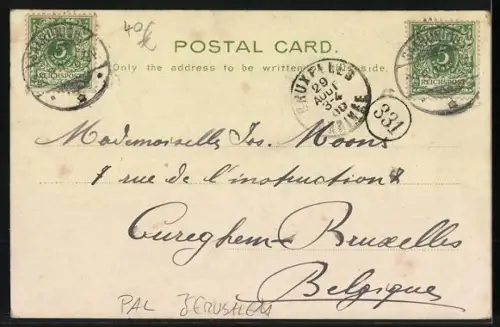 40
5
REICHSPOST
POSTAL CARD.
5
REICHSPOST
Only the address to be written side.
BRUXELLES
29
AOUT
3-4
331
Mademoiselle Jos. Moons
7 rue de l'instruction
Cureghem-Bruxelles
Belgique
PAL JERUSALEM